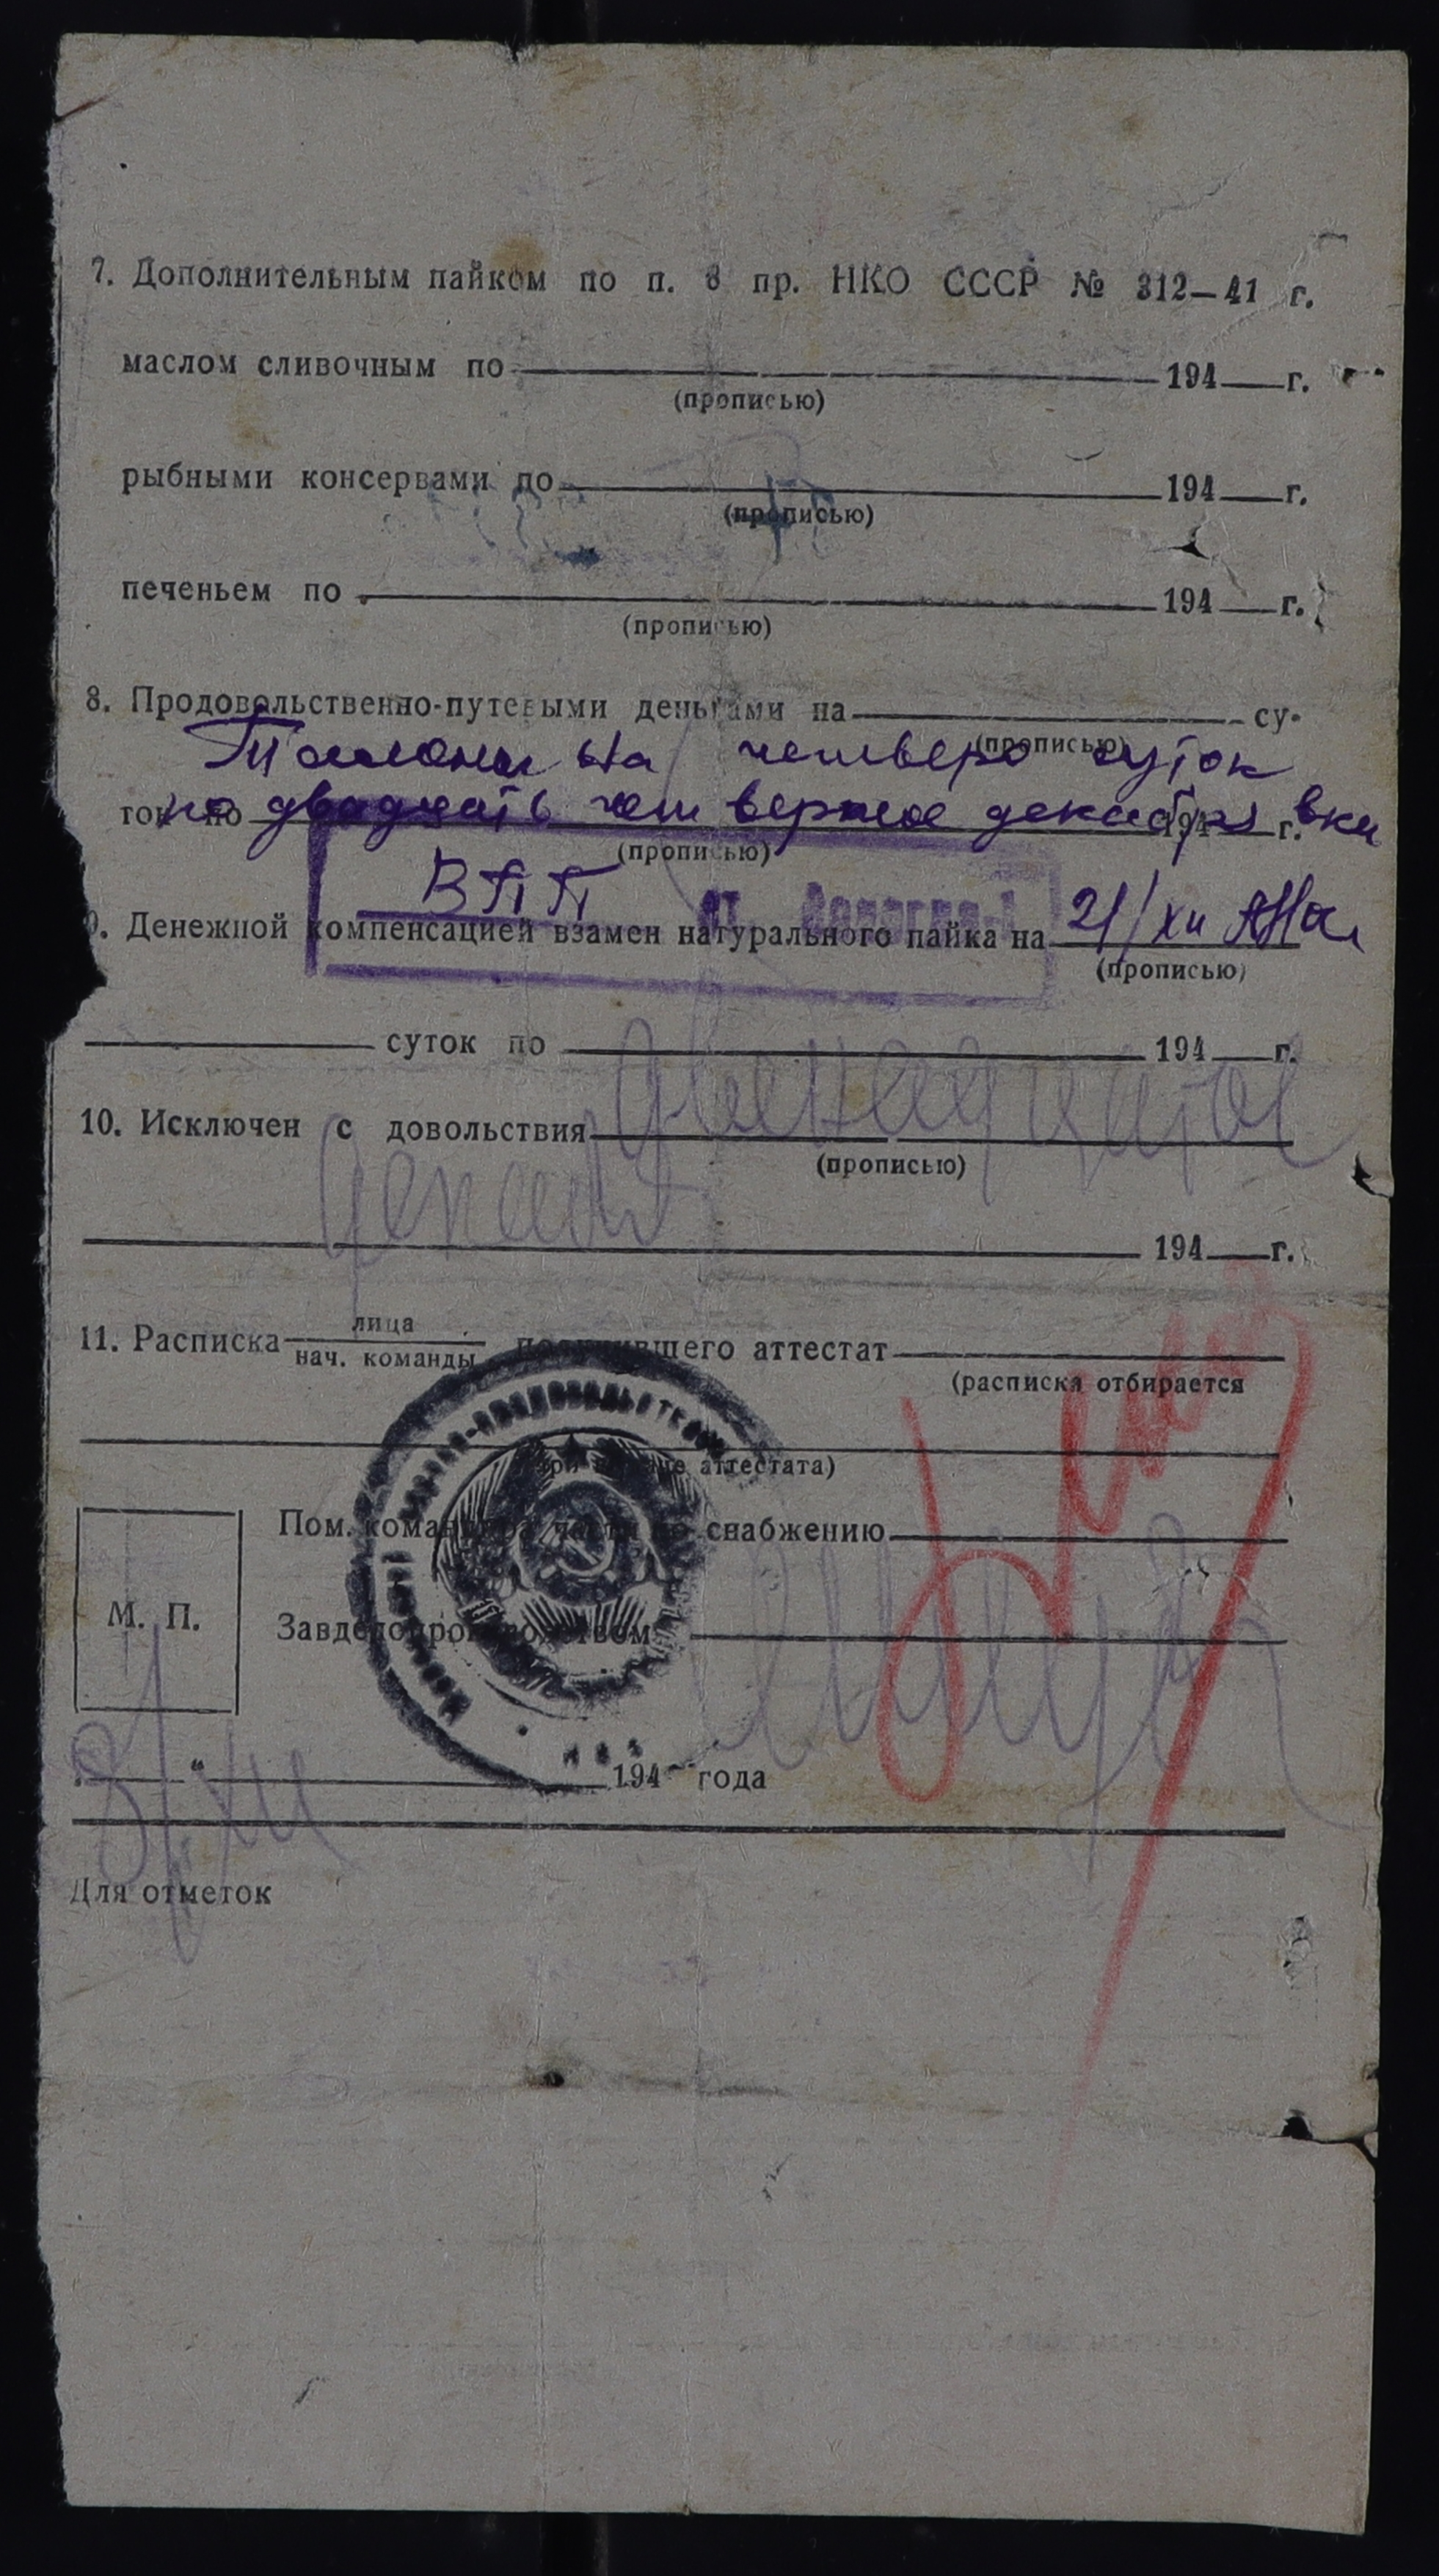 7. Дополнительным пайком по п. 8 пр. НКО СССР № 312—41 г.
маслом сливочным по 194 г.
(прописью)
рыбными консервами по 194 г.
(прописью)
печеньем по 194 г.
(прописью)
8. Продовольственно-путевыми деньгами на су-
(прописью)
Талоны на четверо суток
ток по 194 г.
по двадцать четвертое декабря вкл
(прописью)
ВПП ст. Вологда-1
9. Денежной компенсацией взамен натурального пайка на 21/XII
(прописью)
суток по 194 г.
10. Исключен с довольствия двенадцатое
(прописью)
декабря
194 г.
11. Расписка лица
нач. команды получившего аттестат
(расписка отбирается
при выдаче аттестата)
Пом. командира части по снабжению
М. П.
Завделопроизводством
„ “ 194 года
XII
Для отметок